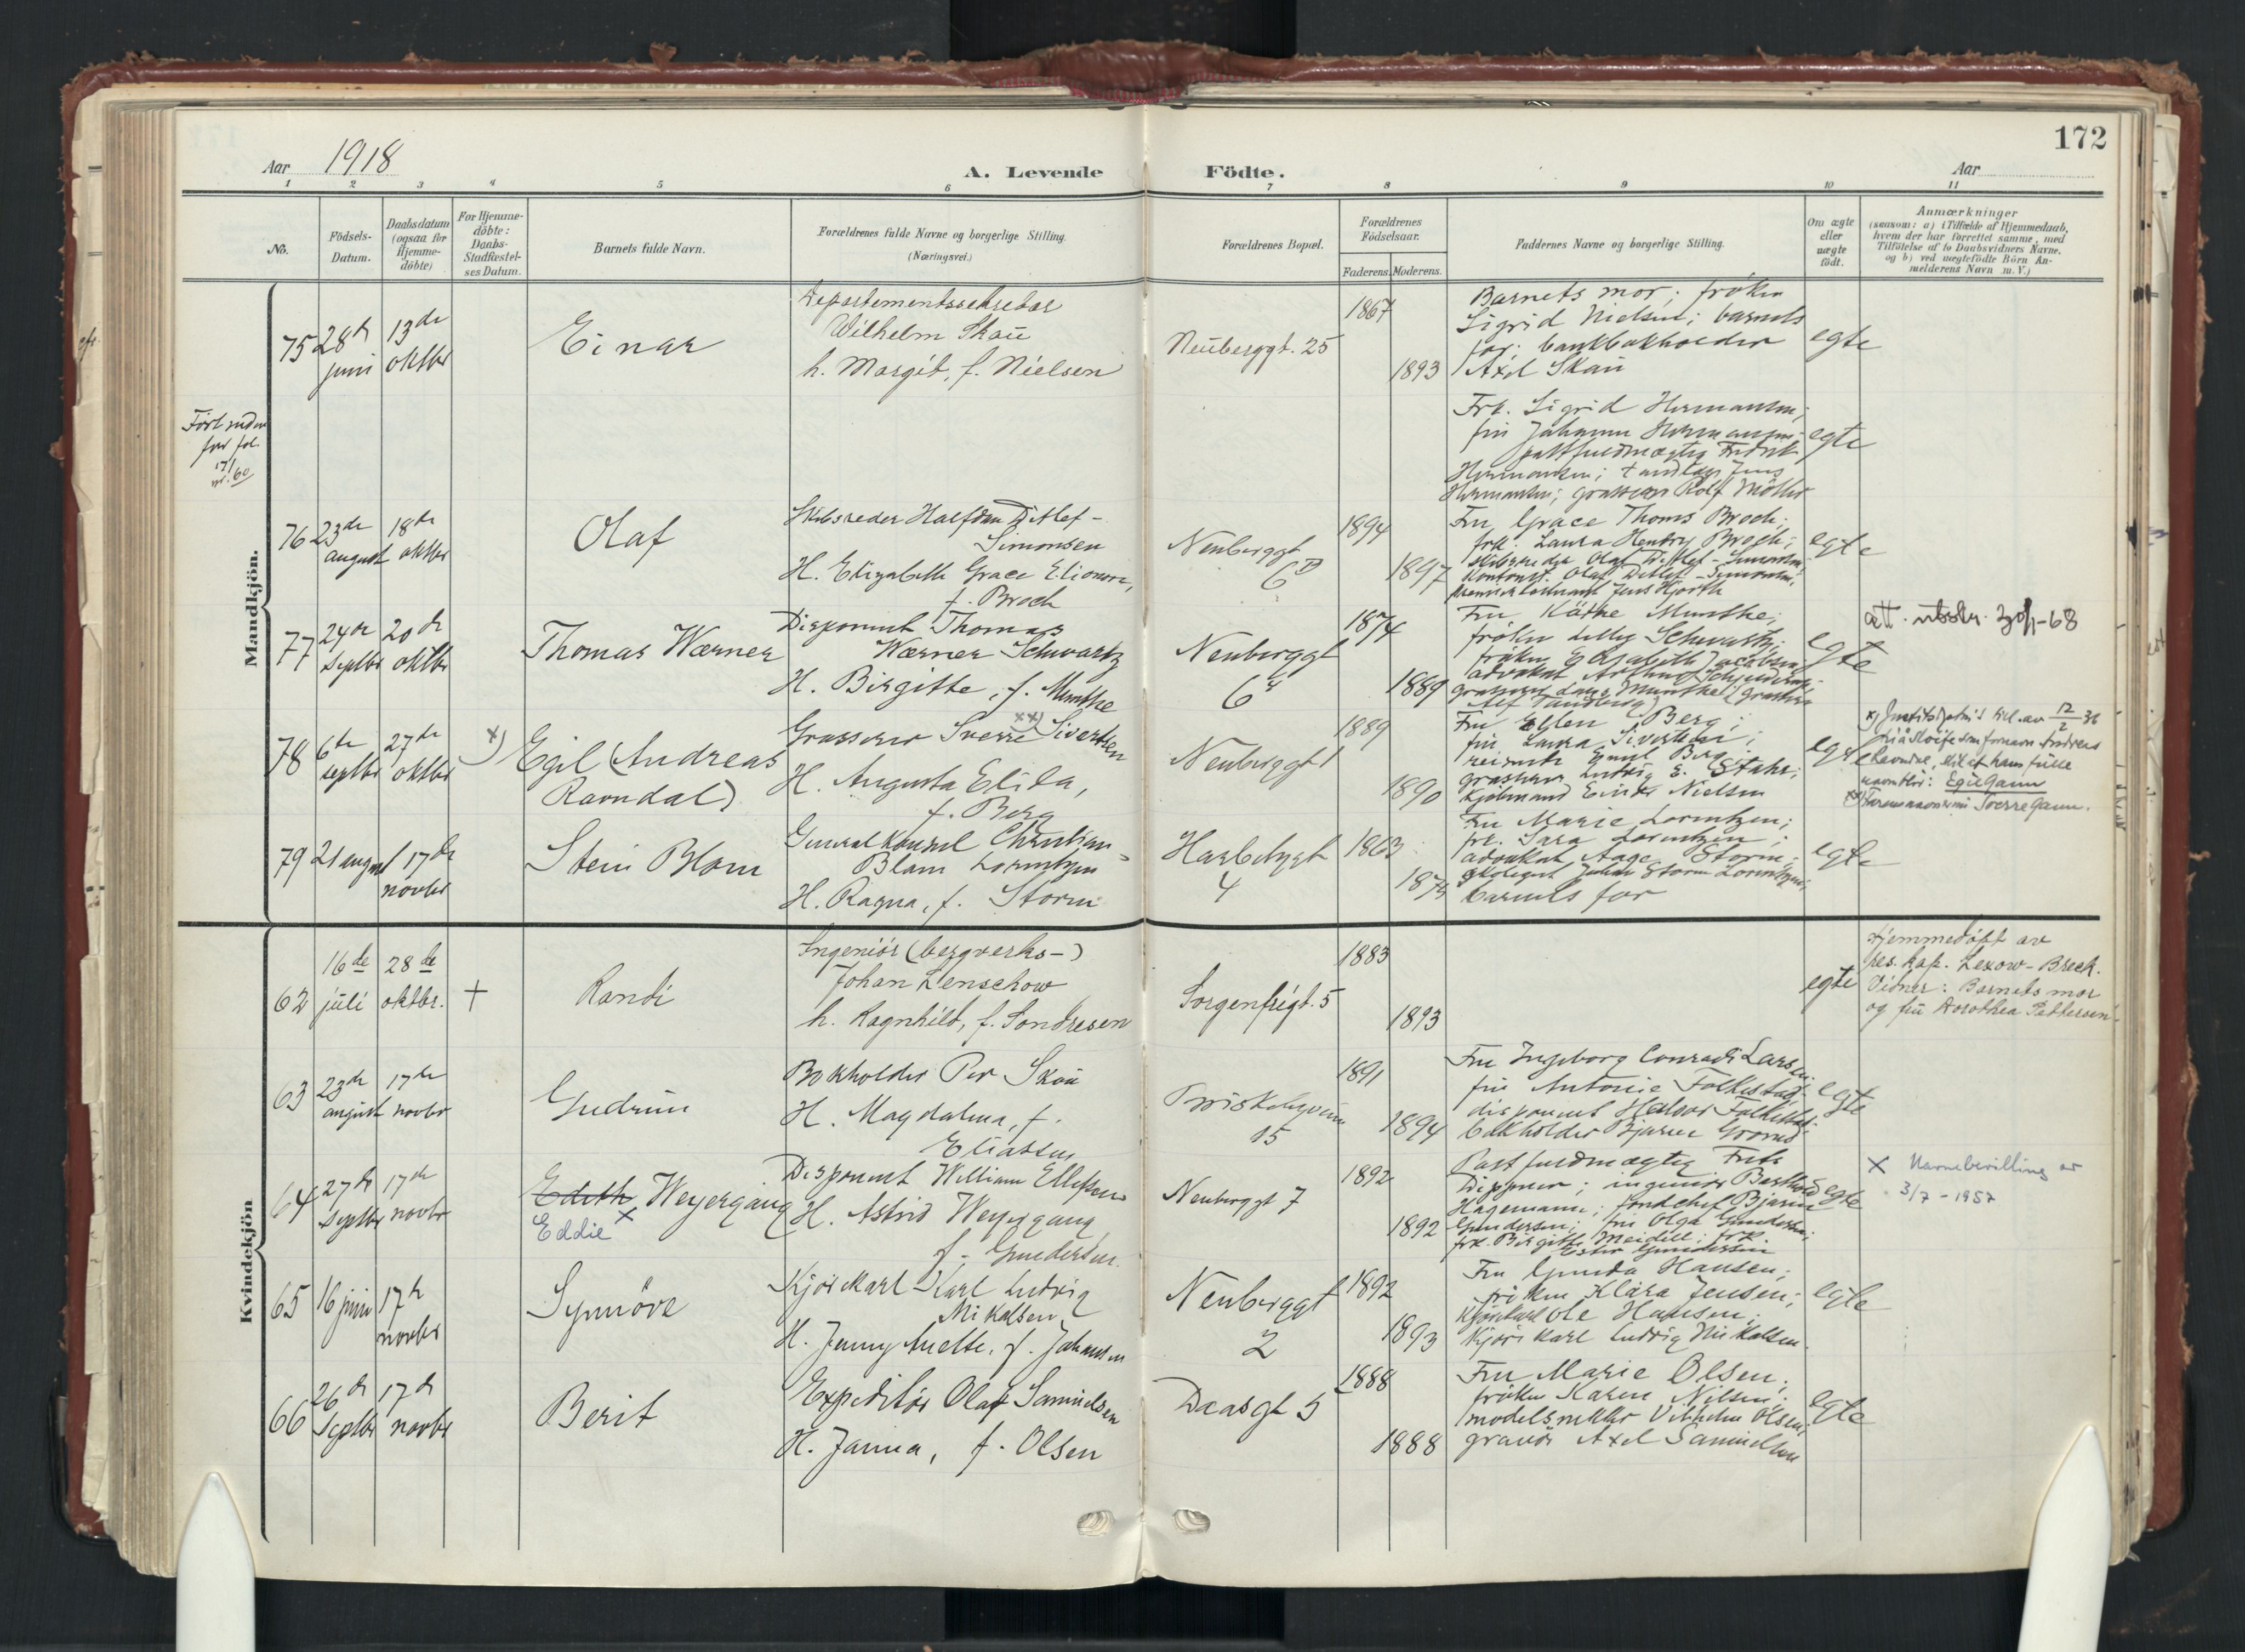 172
Aar 1918
A. Levende Födte.
Aar
1 2 3 4 5 6 7 8 9 10 11
No.
Födsels-
Datum.
Daabsdatum
(ogsaa for
Hjemme-
döbte)
For Hjemme-
döbte:
Daabs-
Stadfæstel-
ses Datum.
Barnets fulde Navn.
Forældrenes fulde Navne og borgerlige Stilling.
(Næringsvei.)
Forældrenes Bopæl.
Forældrenes
Födselsaar.
Faderens. Moderens.
Faddernes Navne og borgerlige Stilling.
Om ægte
eller
uægte
födt.
Anmærkninger
(saasom: a) i Tilfælde af Hjemmedaab,
hvem der har forrettet samme, med
Tilföielse af to Daabsvidners Navne.
og b) ved uægtefödte Börn An-
melderens Navn m. V.)
Mandkjön.
75
28de
juni
13de
oktbr
Einar
Departementssekretær
Wilhelm Skau
h. Margit, f. Nielsen
Neuberggt. 25
1867
1893
Barnets mor; frøken
Sigrid Nielsen; barnets
far; bankbokholder
Axel Skau
egte
Ført
fol.
171
nr. 60
Frk. Sigrid Hermansen;
fru Johanne Hermansen;
Hermansen; Jens
Hermansen; grosserer Rolf Møller
egte
76
23de
august
18de
oktbr
Olaf
Skibsreder Halfdan Ditlef-
Simonsen
H. Elizabeth Grace Elionore,
f. Broch
Neuberggt
6D
1894
1897
Fru Grace Thoms Broch;
frk. Laura Broch;
Skibsreder Olaf Ditlef-Simonsen;
Kontorist Olaf Ditlef-Simonsen;
premierløitnant Jens Hjorth
egte
77
24de
septbr
20de
oktbr
Thomas Wærner
Disponent Thomas
Wærner Schwartz
H. Birgitte, f. Munthe
Neuberggt
6
1874
1889
Fru Käthe Munthe;
frøken Lilly Schwartz;
frøken Elisabeth Jacobsen;
advokat
grosserer Munthe; grosserer
Alf
egte
att. utstr. 30/1-68
78
6te
septbr
27de
oktbr
x)
Egil (Andreas
Ravndal)
Grosserer Sverre xx) Sivertsen
H. Augusta Elida,
f. Berg
Neuberggt 1
1889
1890
Fru Ellen Berg;
fru Laura Sivertsen;
reisende Emil Berg;
grosserer Ludvig E. Stahr;
Kjøbmand Einar Nielsen
egte
x) Justitsdptm's bil. av 12/2 36
til å sløife fornavn Andreas
Ravndal, slik at hans fulle
navn blir: Egil Gann
xx) Farens navn er nu Sverre Gann.
79
21 august
17de
novbr
Stein Blom
Generalkonsul Christian
Blom Lorentzen
H. Ragna, f. Storm
Harbitzgt
4
1863
1875
Fru Marie Lorentzen;
frk. Sara Lorentzen;
advokat Aage Storm;
Johan Storm Lorentzen;
barnets far
egte
Kvindekjön
62
16de
juli
28de
oktbr.
+
Randi
Ingeniør (bergverks-)
Johan Lenschow
h. Ragnhild, f. Sondresen
Sorgenfrigt. 5
1883
1893
egte
Hjemmedøpt av
res. kap. Lexow-Breck.
Vidner: Barnets mor
og fru Dorothea Pettersen.
63
23de
august
17de
novbr
Gudrun
Bokholder Per Skau
H. Magdalena, f.
Eliassen
Briskebyveien
15
1891
1894
Fru Ingeborg Conradi Larsen;
fru Antonie Folkestad;
disponent Halvor Folkestad;
bokholder Bjarne
egte
64
27de
septbr
17de
novbr
Edith Weyergang
Eddie x
Disponent William Ellefsen
H. Astrid Weyergang,
f. Gundersen.
Neuberggt 7
1892
1892
Postfuldmægtig
ingeniør Berthold
Hagemann; fondchef Bjarne
Gundersen; fru Olga Gundersen;
frk. Birgitte Meidell; frk.
Ester Gundersen
egte
x Navnebevilling av
3/7 - 1957
65
16 juni
17de
novbr
Synnöve
Kjørekarl Karl Ludvig
Mikalsen
H. Jenny Anette, f. Johansen
Neuberggt
2
1892
1893
Fru Gunda Hansen;
frøken Klara Jensen;
kjørekarl Ole Hansen;
Kjørekarl Ludvig Mikalsen.
egte
66
26de
septbr
17de
novbr
Berit
Expeditør Olaf Samuelsen
H. Janna, f. Olsen
Daasgt 5
1888
1888
Fru Marie Olsen;
frøken Karen Nilsen;
modelsnekker Vilhelm Olsen;
gravør Axel Samuelsen
egte